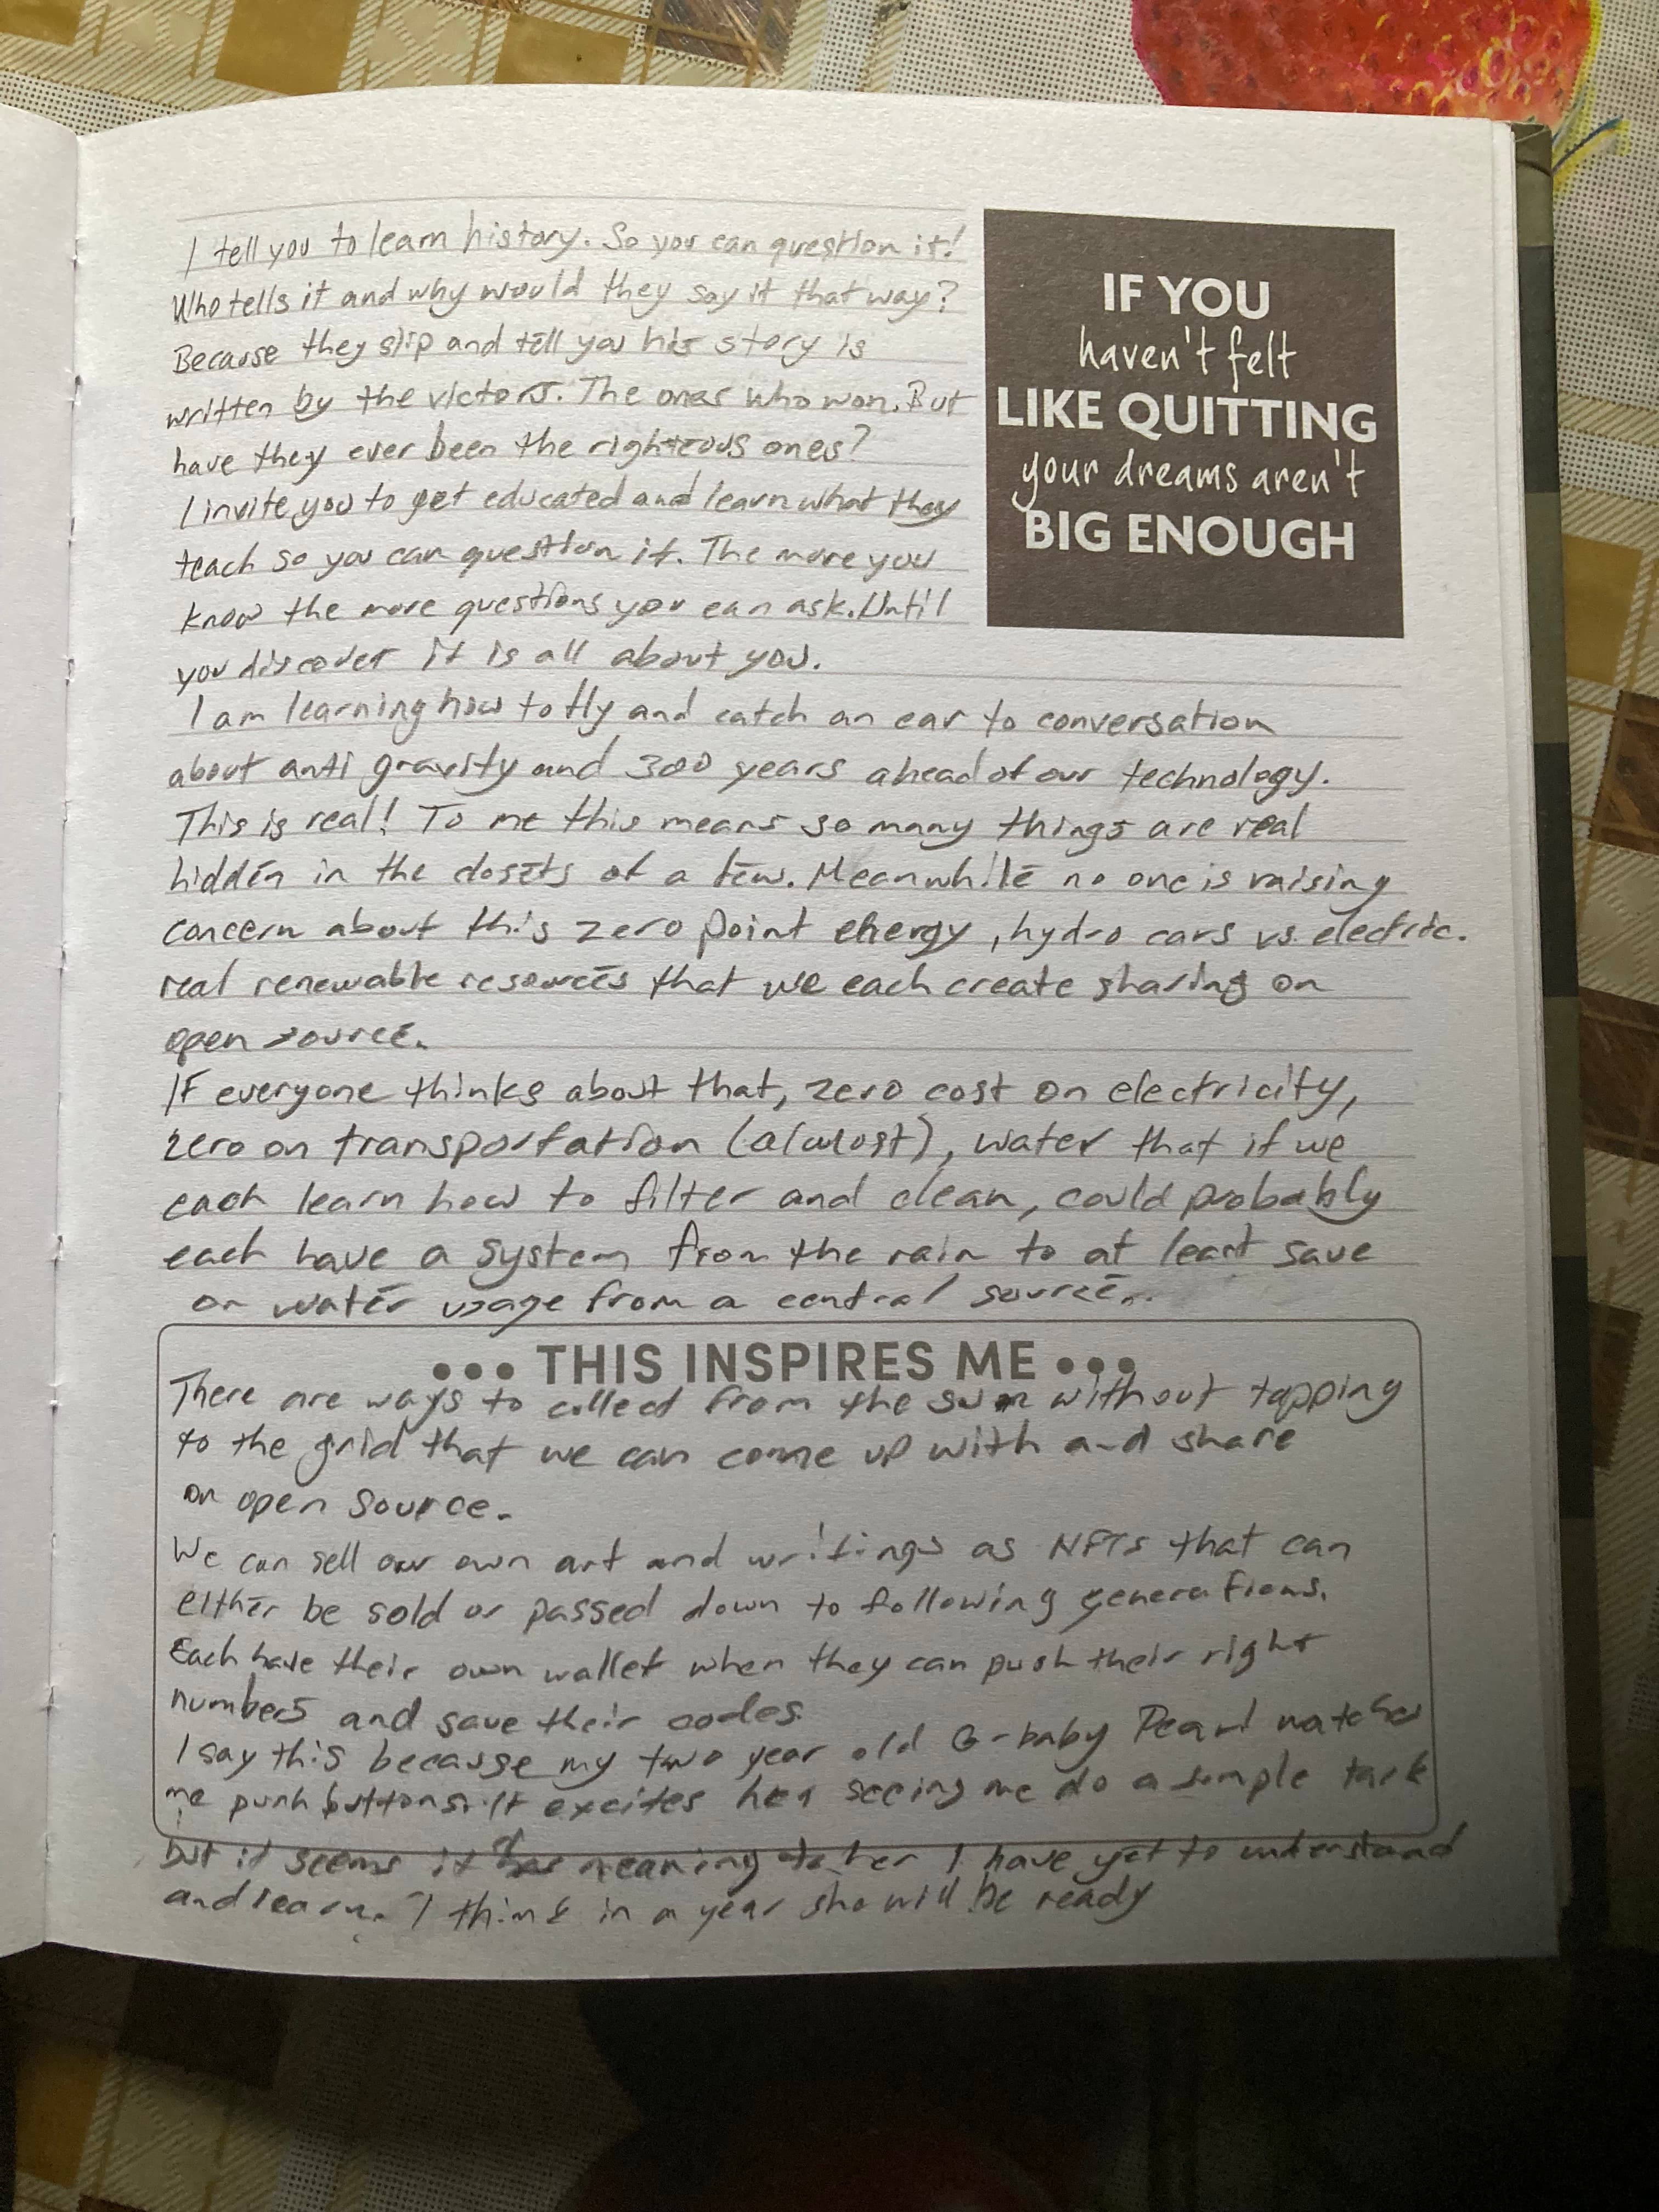 I tell you to learn history. So you can question it!
Who tells it and why would they say it that way?
Because they slip and tell you his story is
written by the victors. The ones who won. But
have they ever been the righteous ones?
I invite you to get educated and learn what they
teach so you can question it. The more you
know the more questions you can ask. Until
you discover it is all about you.
IF YOU
haven't felt
LIKE QUITTING
your dreams aren't
BIG ENOUGH
I am learning how to fly and catch an ear to conversation
about anti gravity and 300 years ahead of our technology.
This is real! To me this means so many things are real
hidden in the closets of a few. Meanwhile no one is raising
concern about this zero point energy, hydro cars vs. electric.
real renewable resources that we each create sharing on
open source.
IF everyone thinks about that, zero cost on electricity,
zero on transportation (almost), water that if we
each learn how to filter and clean, could probably
each have a system from the rain to at least save
on water usage from a central source...
••• THIS INSPIRES ME •••
There are ways to collect from the sun without tapping
to the grid that we can come up with and share
on open source.
We can sell our own art and writings as NFTs that can
either be sold or passed down to following generations.
Each have their own wallet when they can push their right
numbers and save their codes.
I say this because my two year old G-baby Pearl watches
me push buttons. It excites her seeing me do a simple task
but it seems it has meaning to her I have yet to understand
and learn. I think in a year she will be ready